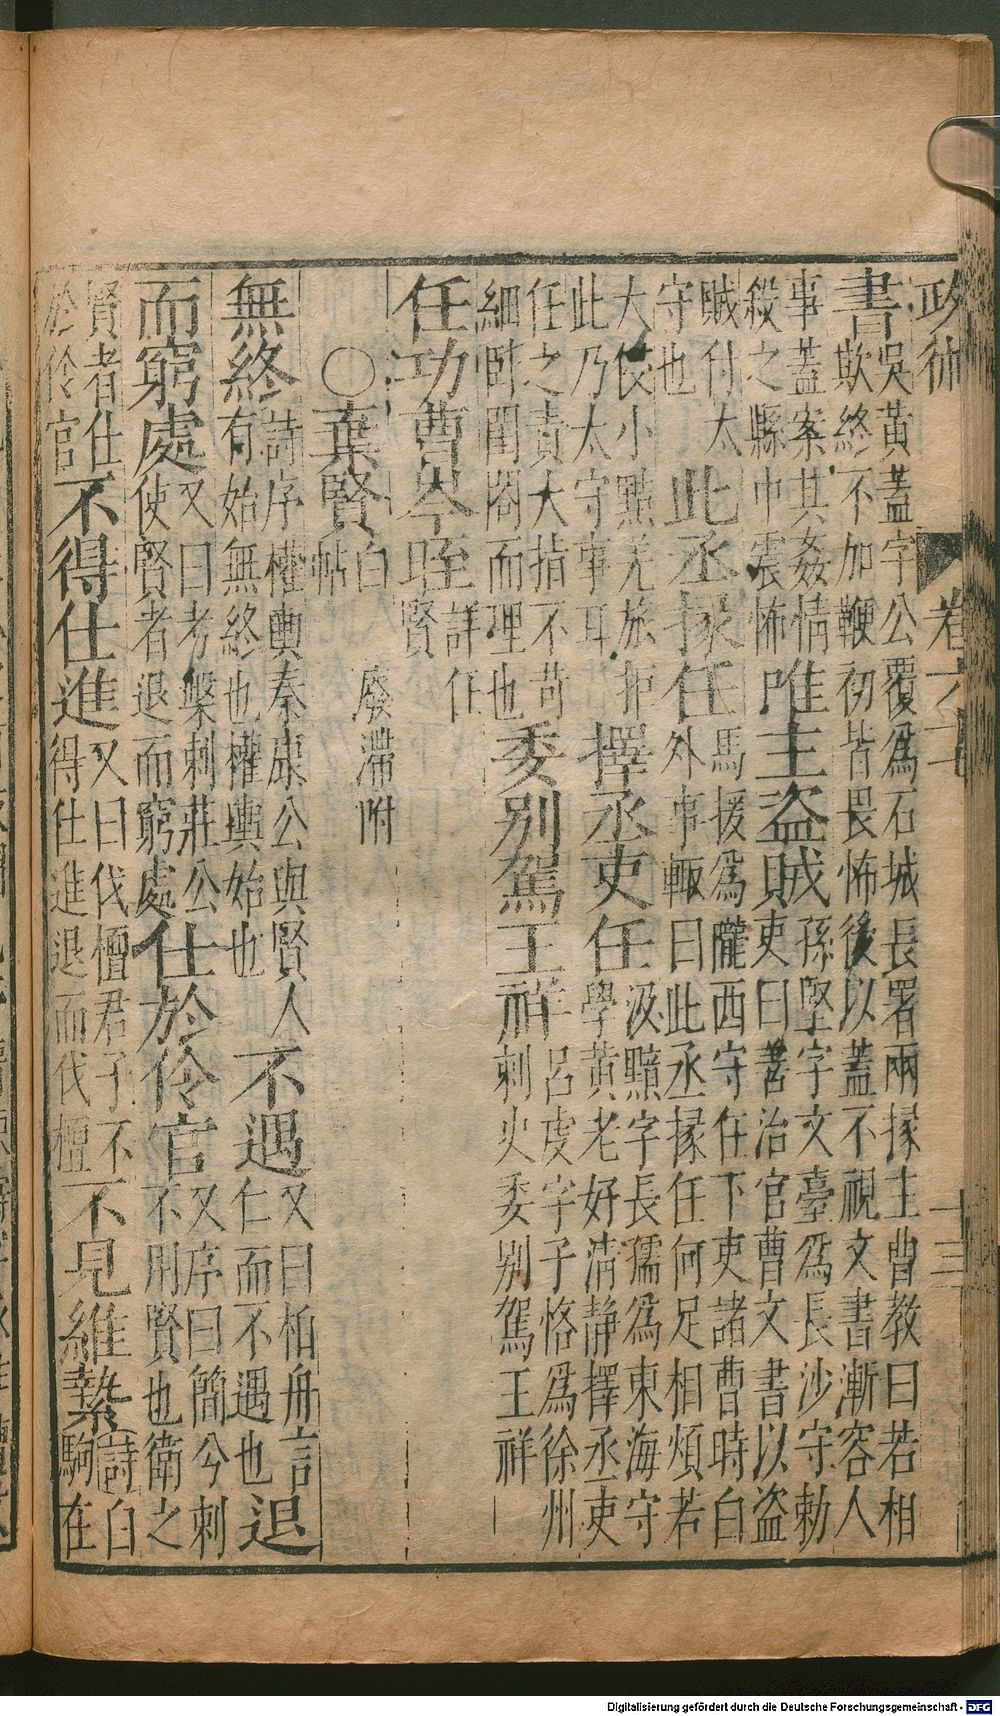 政術 卷六十七 十三
書吳黃蓋字公覆為石城長署兩掾主曹教曰若相
欺終不加鞭初皆畏怖後以蓋不視文書漸容人
事蓋案其姦情
殺之縣中震怖
唯主盗賊
孫堅字文臺為長沙守勅
吏曰善治官曹文書以盗
賊付太
守也
此丞掾任
馬援為隴西守任下吏諸曹時白
外事輙曰此丞掾任何足相煩若
大佼小黠羌旅拒
此乃太守事耳
擇丞吏任
汲黯字長孺為東海守
學黃老好清静擇丞吏
任之責大指不苛
細卧閤而理也
委别駕王祥
呂虔字子恪為徐州
刺史委别駕王祥
任功曹岑晊
詳任
賢
○棄賢
白
帖
廢滯附
無終
詩序權輿秦康公與賢人
有始無終也權輿始也
不遇
又曰柏舟言
仁而不遇也
退
而窮處
又曰考槃刺莊公
使賢者退而窮處
仕於伶官
又序曰簡兮刺
不用賢也衛之
賢者仕
於伶官
不得仕進
又曰伐檀君子不
得仕進退而伐檀
不見維縶
詩白
駒在
Digitalisierung gefördert durch die Deutsche Forschungsgemeinschaft - DFG